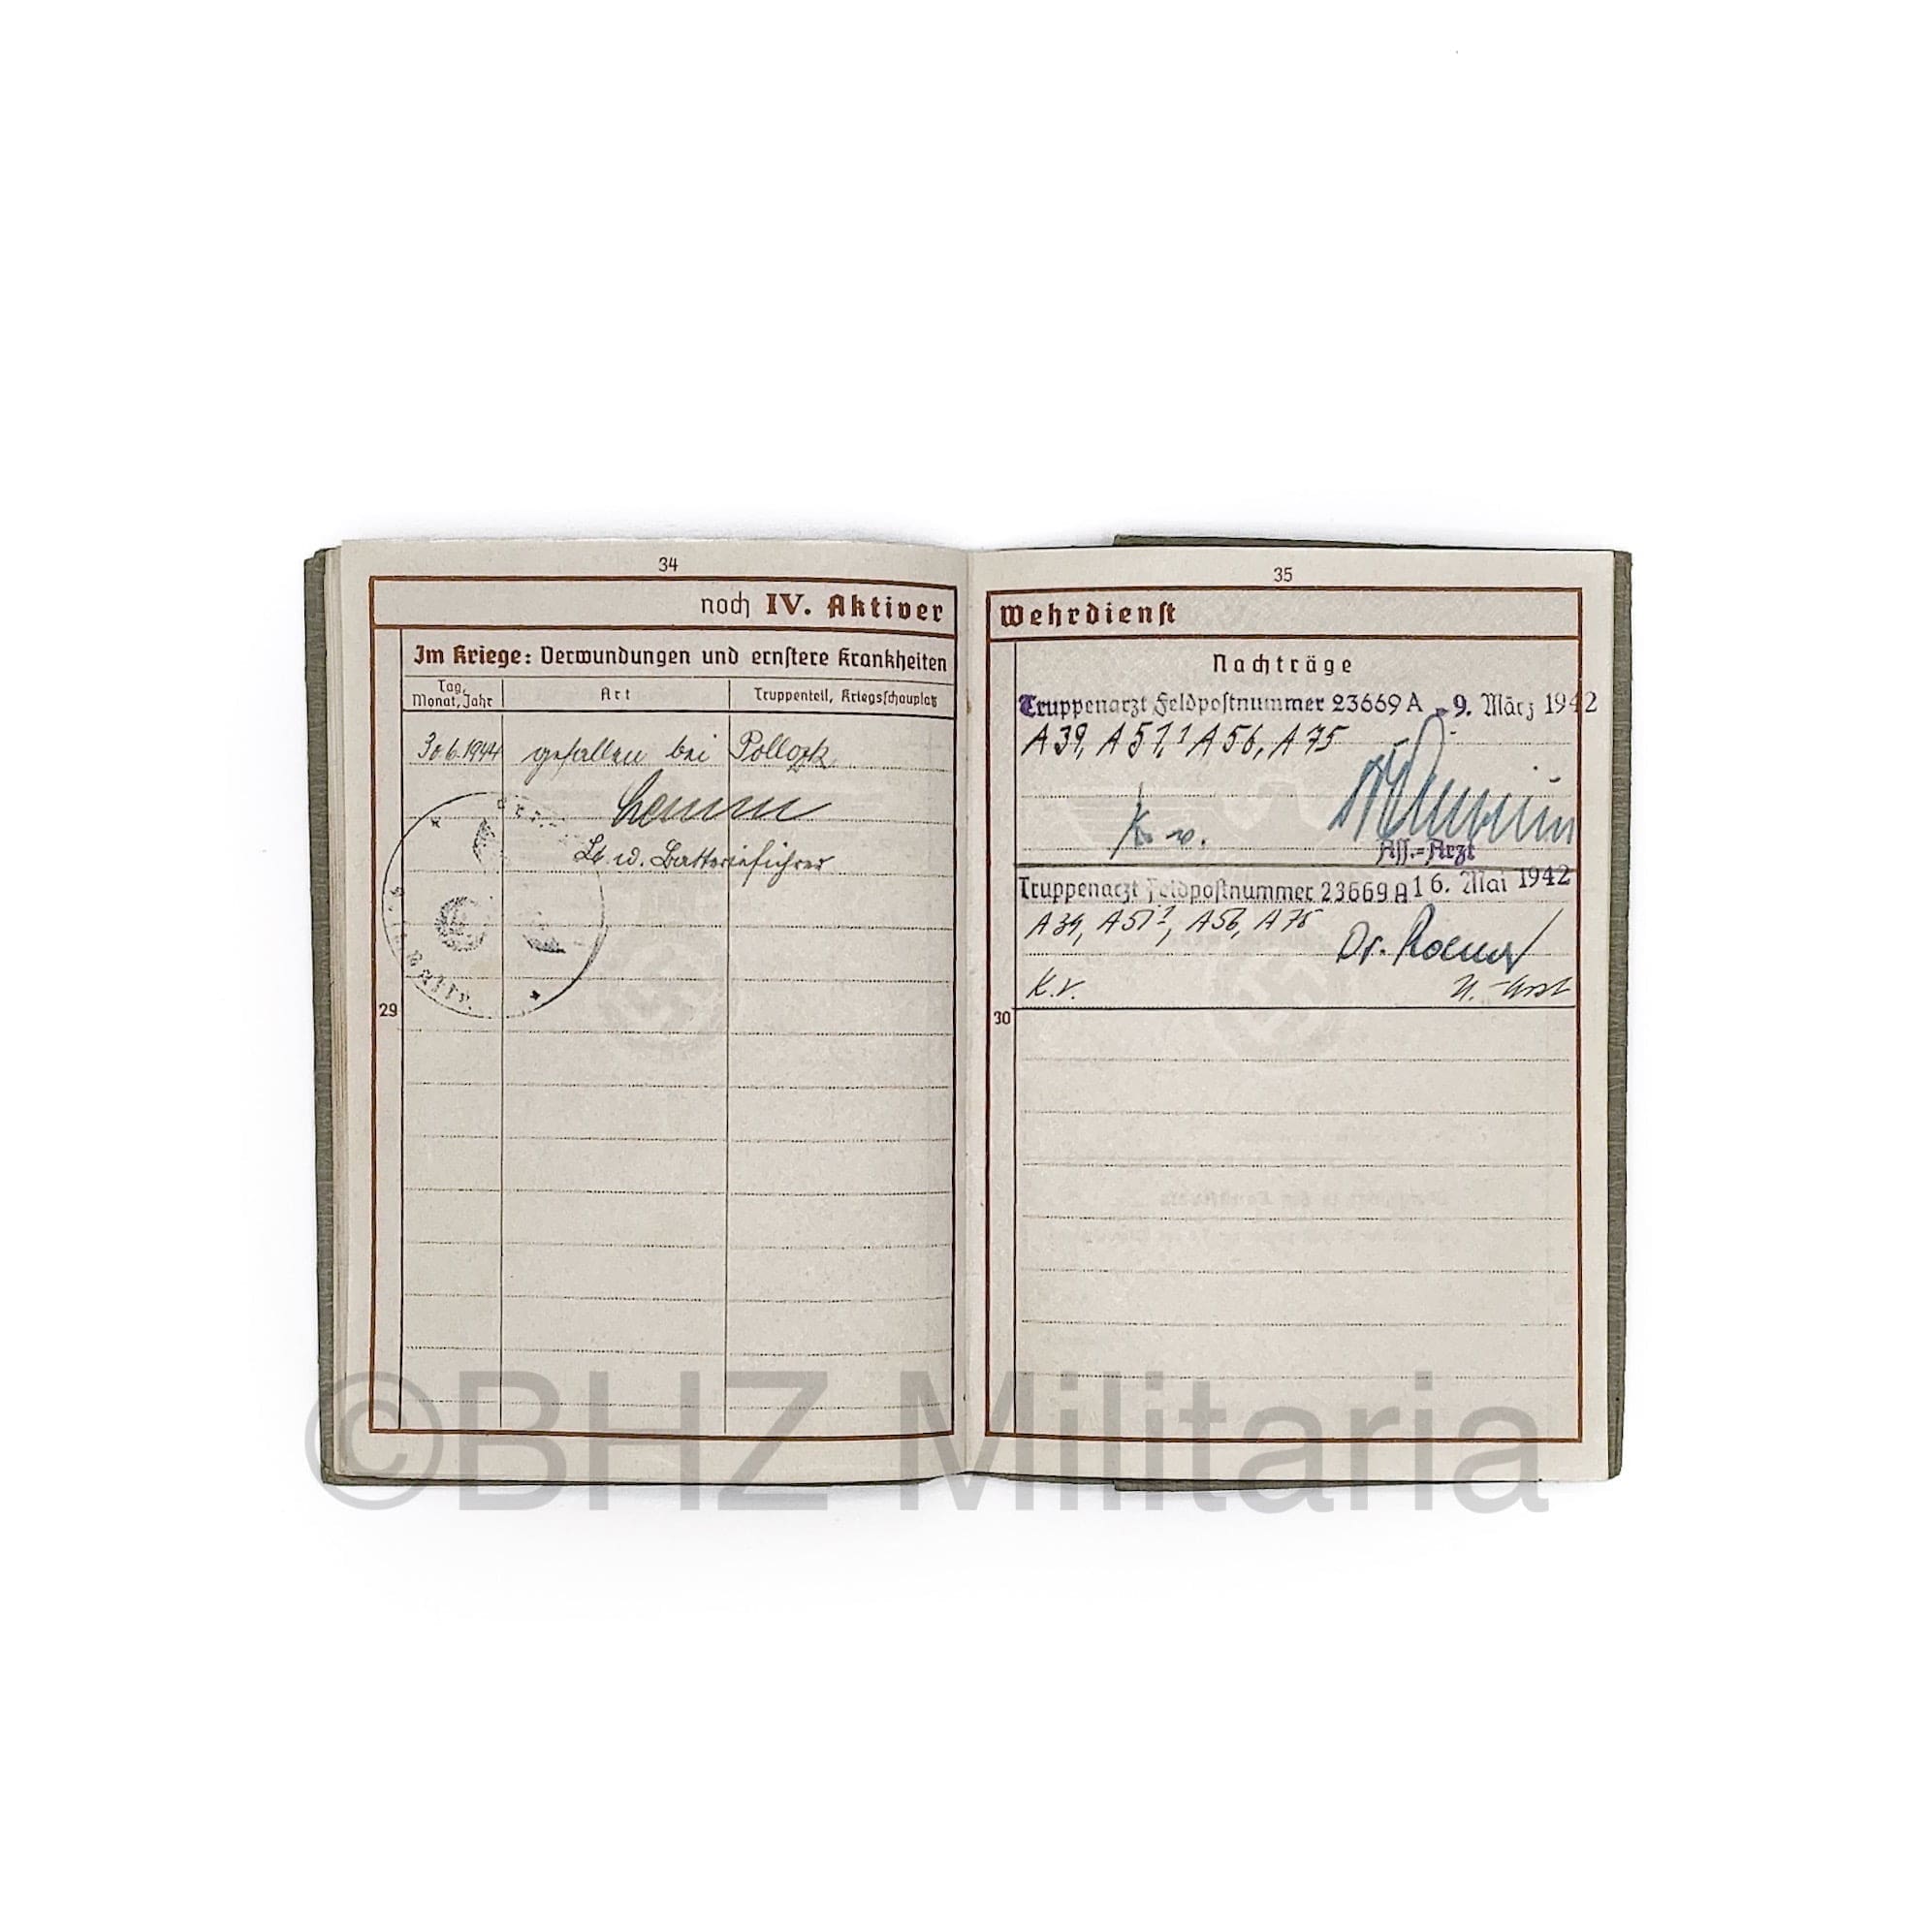 34
noch IV. Aktiver
Im Kriege: Verwundungen und ernstere Krankheiten
Tag, Monat, Jahr
Art
Truppenteil, Kriegsschauplatz
30.6.1944 gefallen bei Pollozk
Lt. u. Batterieführer
29
35
Wehrdienst
Nachträge
Truppenarzt Feldpostnummer 23669 A - 9. März 1942
A 39, A 51,1 A 56, A 75
K. v.
Ass.=Arzt
Truppenarzt Feldpostnummer 23669 A 16. Mai 1942
A 39, A 51, A 56, A 75
Dr.
K.V.
30
©BHZ Militaria